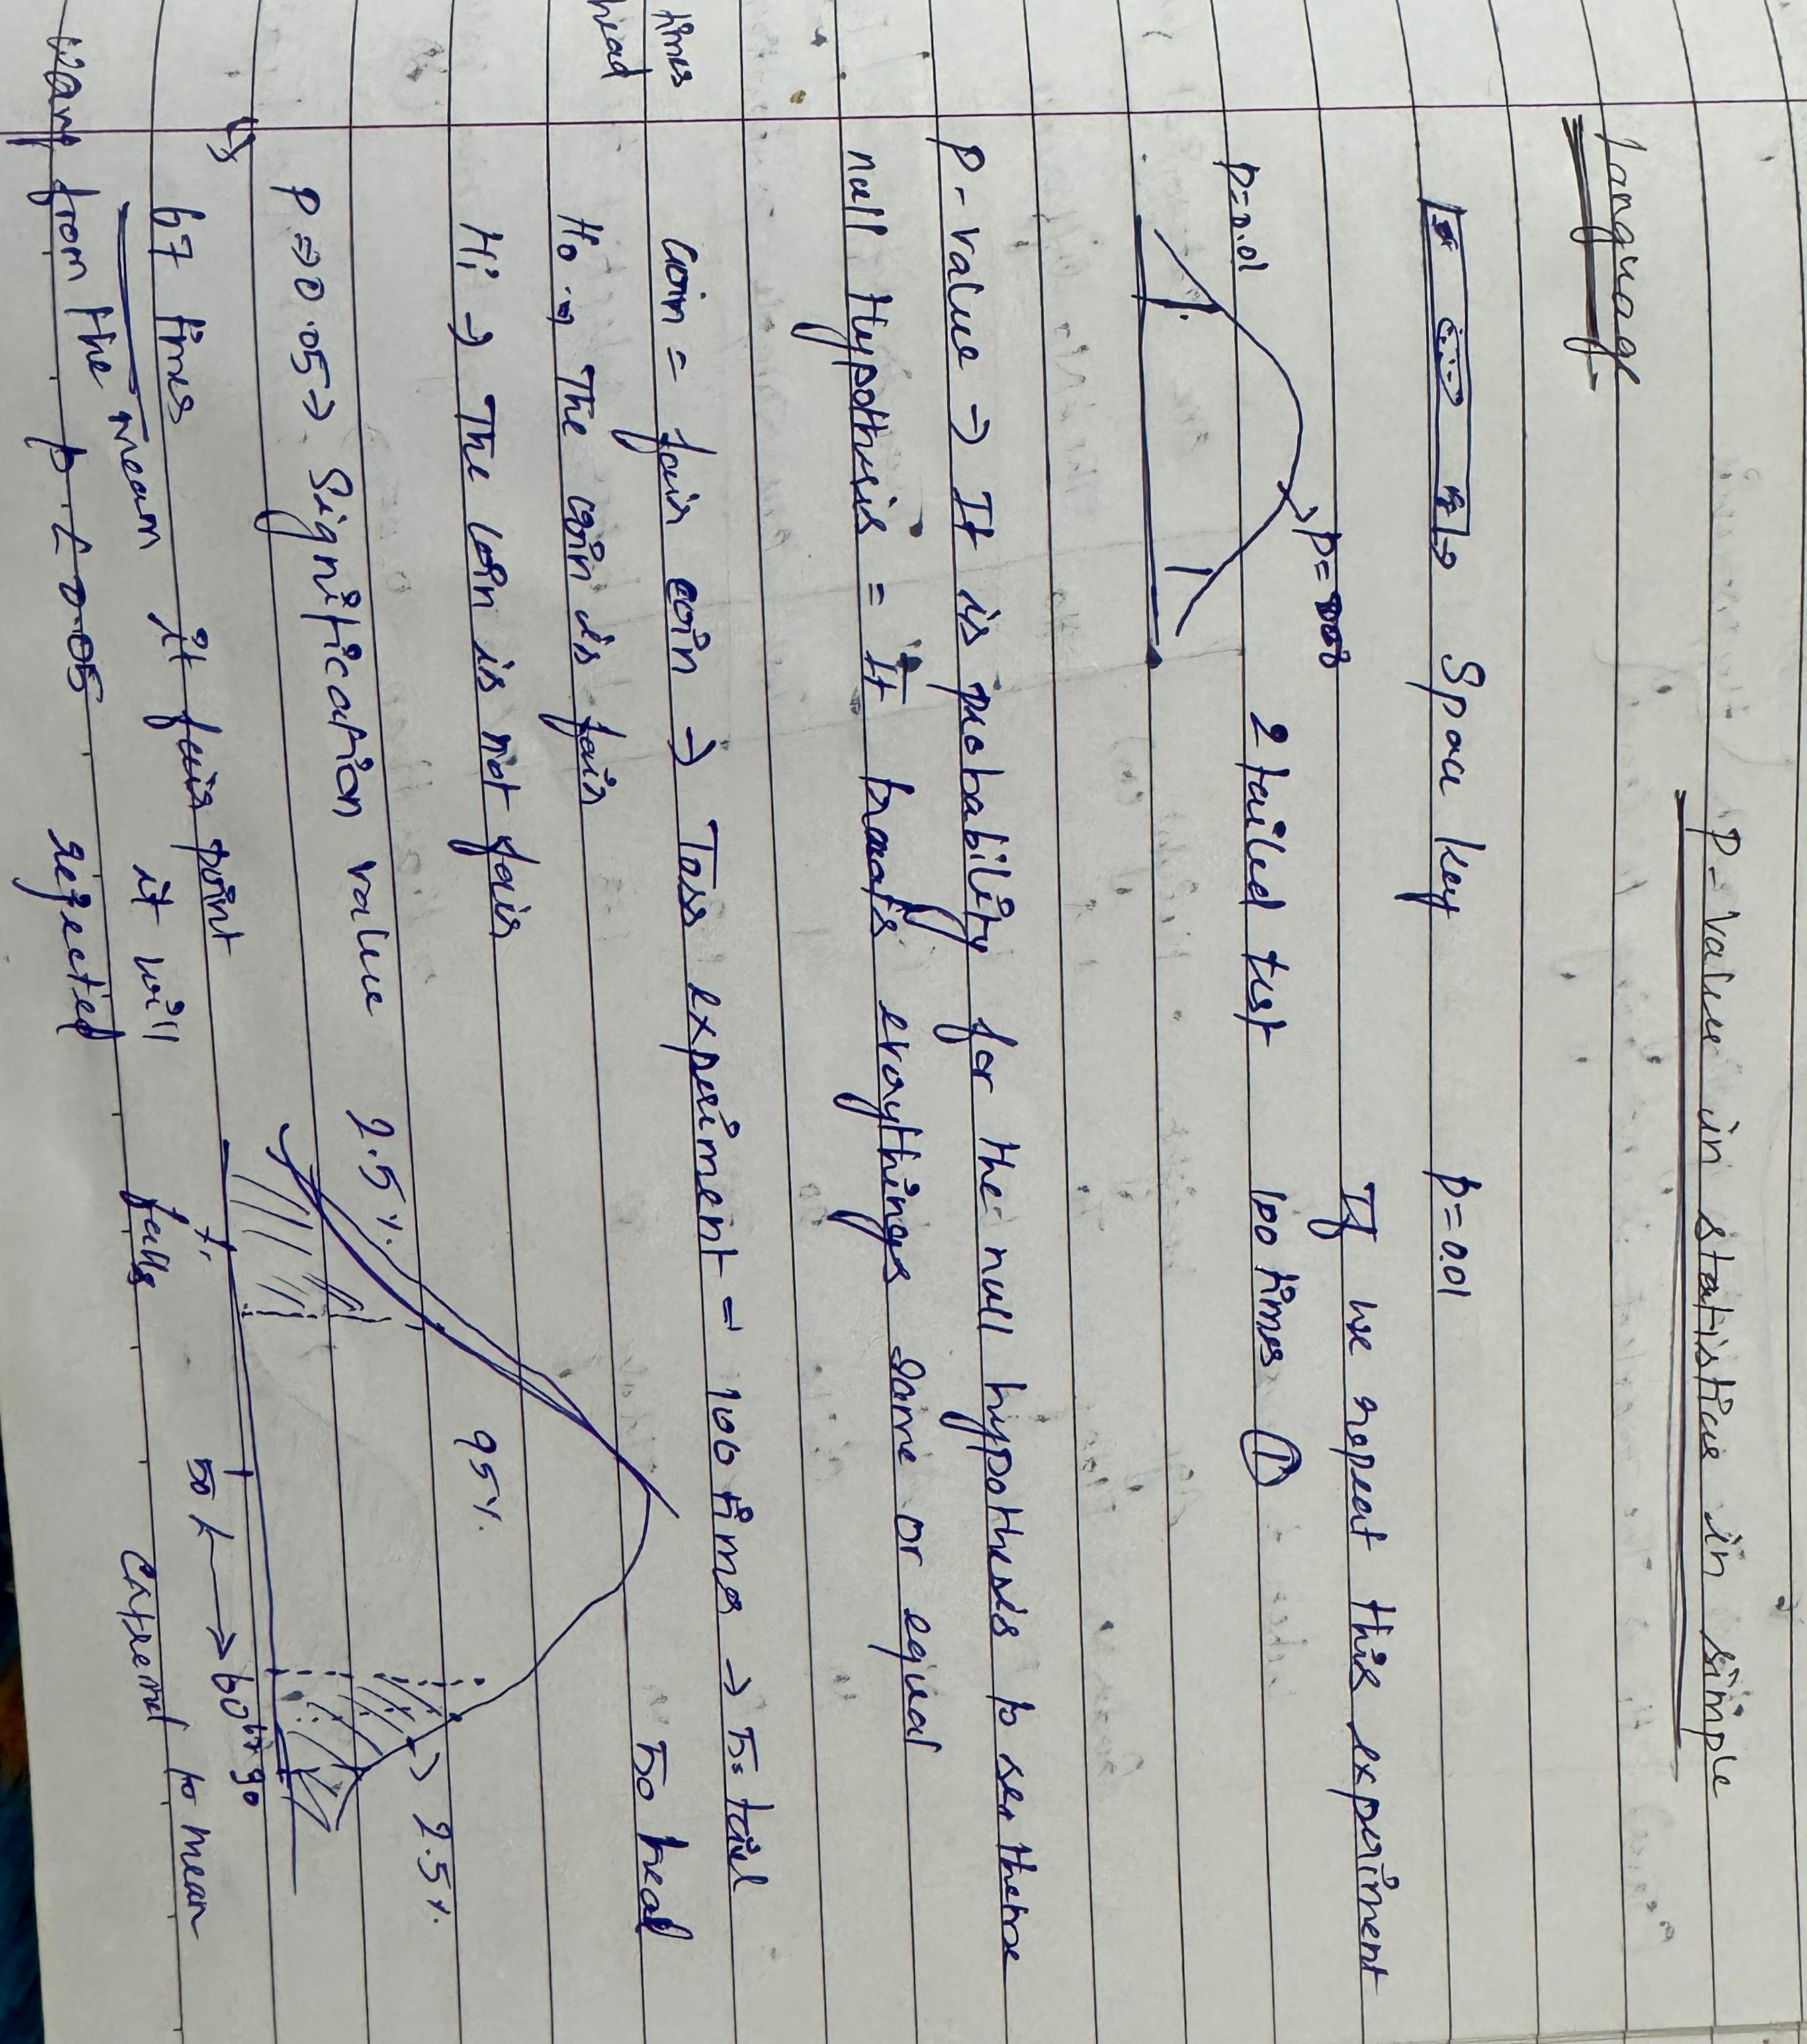 P-Value in statistics in simple
language
Space key p=0.01
p=
If we repeat this experiment
p=0.01 2 tailed test 100 times 1
P-value → It is probability for the null hypothesis to be there
null Hypothesis = It treats everythings same or equal
times Coin = fair coin → Toss experiment = 100 times → 50 tail
head 50 head
H0 → The coin is fair
H1 → The coin is not fair
95%
P → 0.05 → Signification value 2.5% 2.5%
67 times it point 50 60 67 90
it will falls extreme to mean
away from the mean
p < 0.05 rejected